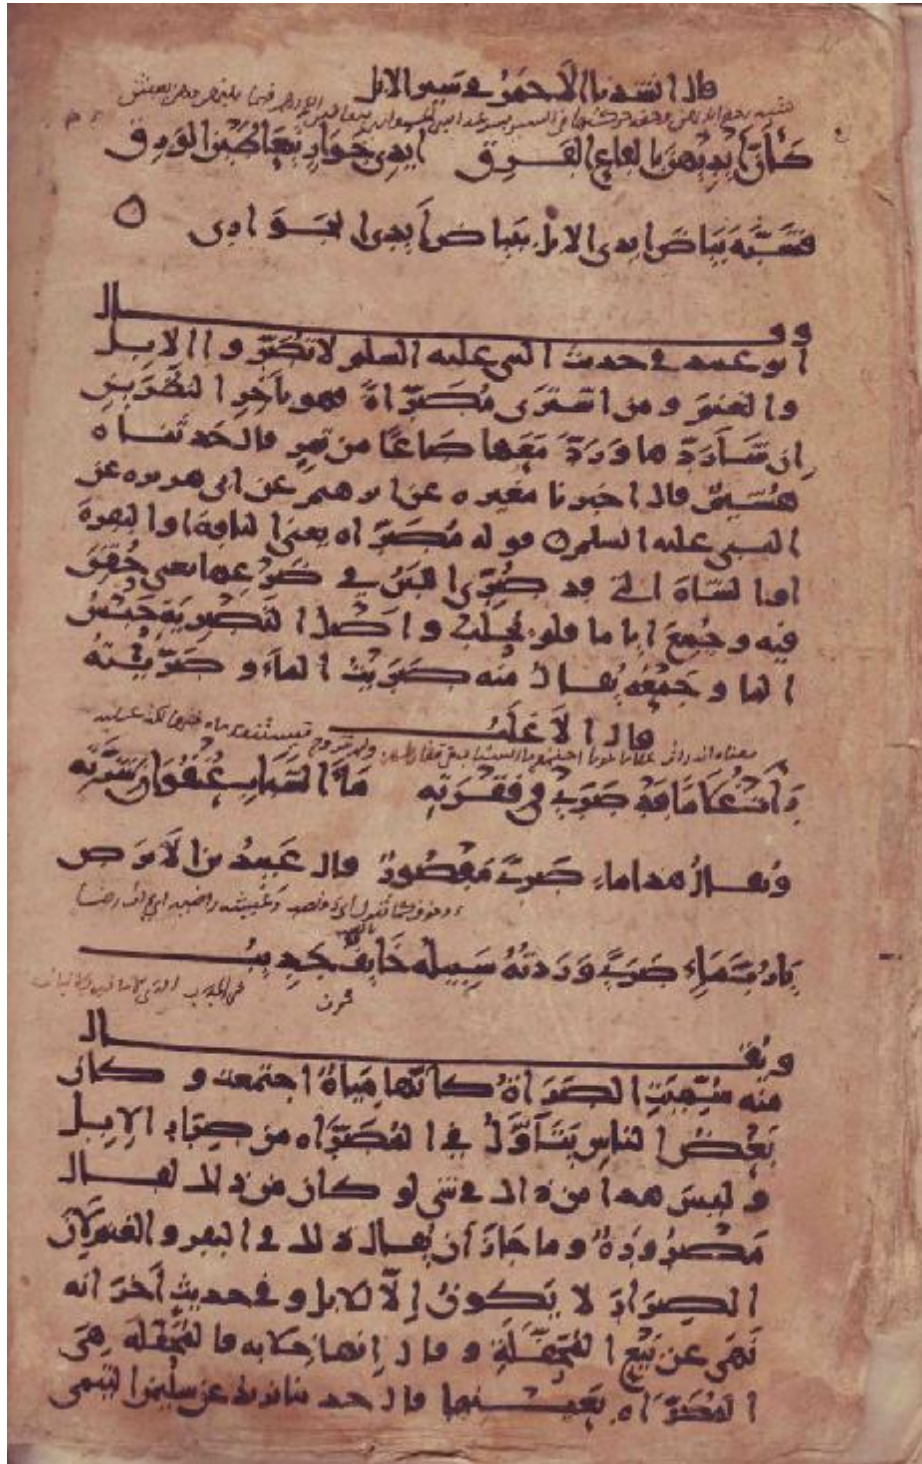 قال انشدنا الاحمر في سير الابل
كَأَنَّ أَيْدِيهِنَّ بالقاعِ القَرِق   أَيدِي جَوَارٍ يَتَعَاطَيْنَ الوَرِق
فشَبَّهَ بَيَاضَ ايدي الابل ببَياض أَيدي الجَوَاري
وقال
ابو عبيد في حديث النبي عليه السلم لا تُصَرّوا الابل
والغنمَ ومن اشترَى مُصَرّاةً فهو بآخِرِ النظَرَيْنِ
إن شَآ رَدّها ورَدَّ مَعَها صَاعًا من تمرٍ قال حَدثناه
هُشَيمٌ قال اخبرنا مغيره عن ابرهيم عن ابي هريره عن
النبي عليه السلم ○ قوله مُصَرّاه يعني الناقة او البقرةَ
او الشاةَ التي قد صُرِّي اللبَنُ في ضَرْعِها يعني حُقِنَ
فيه وجُمِعَ اياما فلم يُحلَب واصْلُ التَصْرِيَةِ حَبْسُ
الما وجَمْعُه يُقال منه صَرَيْتُ الماءَ وصَرّيْتُه
قال الاَغلَبُ
رَأَتْ غُلَامًا قَدْ صَرَى في فِقْرَتِه   مَآءَ الشَبَابِ عُنْفُوَانَ شِرَّتِه
ويُقالُ هذا ماء صَرًى مَقْصُورٌ قال عَبيدُ بن الاَبرَص
يَا رُبَّ مَاءٍ صَرًى وَرَدتُهُ سَبِيلُه خَايفٌ جَدِيبُ
ويُقال
منه سُمِّيَتِ المُصَرَّاةُ كأَنّها مِيَاهٌ اجتمعت وكان
بَعْضُ الناسِ يَتَأَوَّلُ في المُصَرّاه من صِرَارِ الإِبل
وليسَ هذا من ذاك في شي لو كان من ذلك لقال
مَصْرُورَةٌ وما جازَ أن يُقال ذلك في البقر والغنم لِاَنّ
الصِرَارَ لا يَكونُ إلّا للابل وفي حديثٍ آخَرَ انه
نَهَى عن بَيْعِ المُحَفَّلَةِ وقال إنها خِلابه فالمُحَفَّلَه هِيَ
المُصَرّاه بِعَيْنها قال حدثنا يزيد عن سليمن التيمي